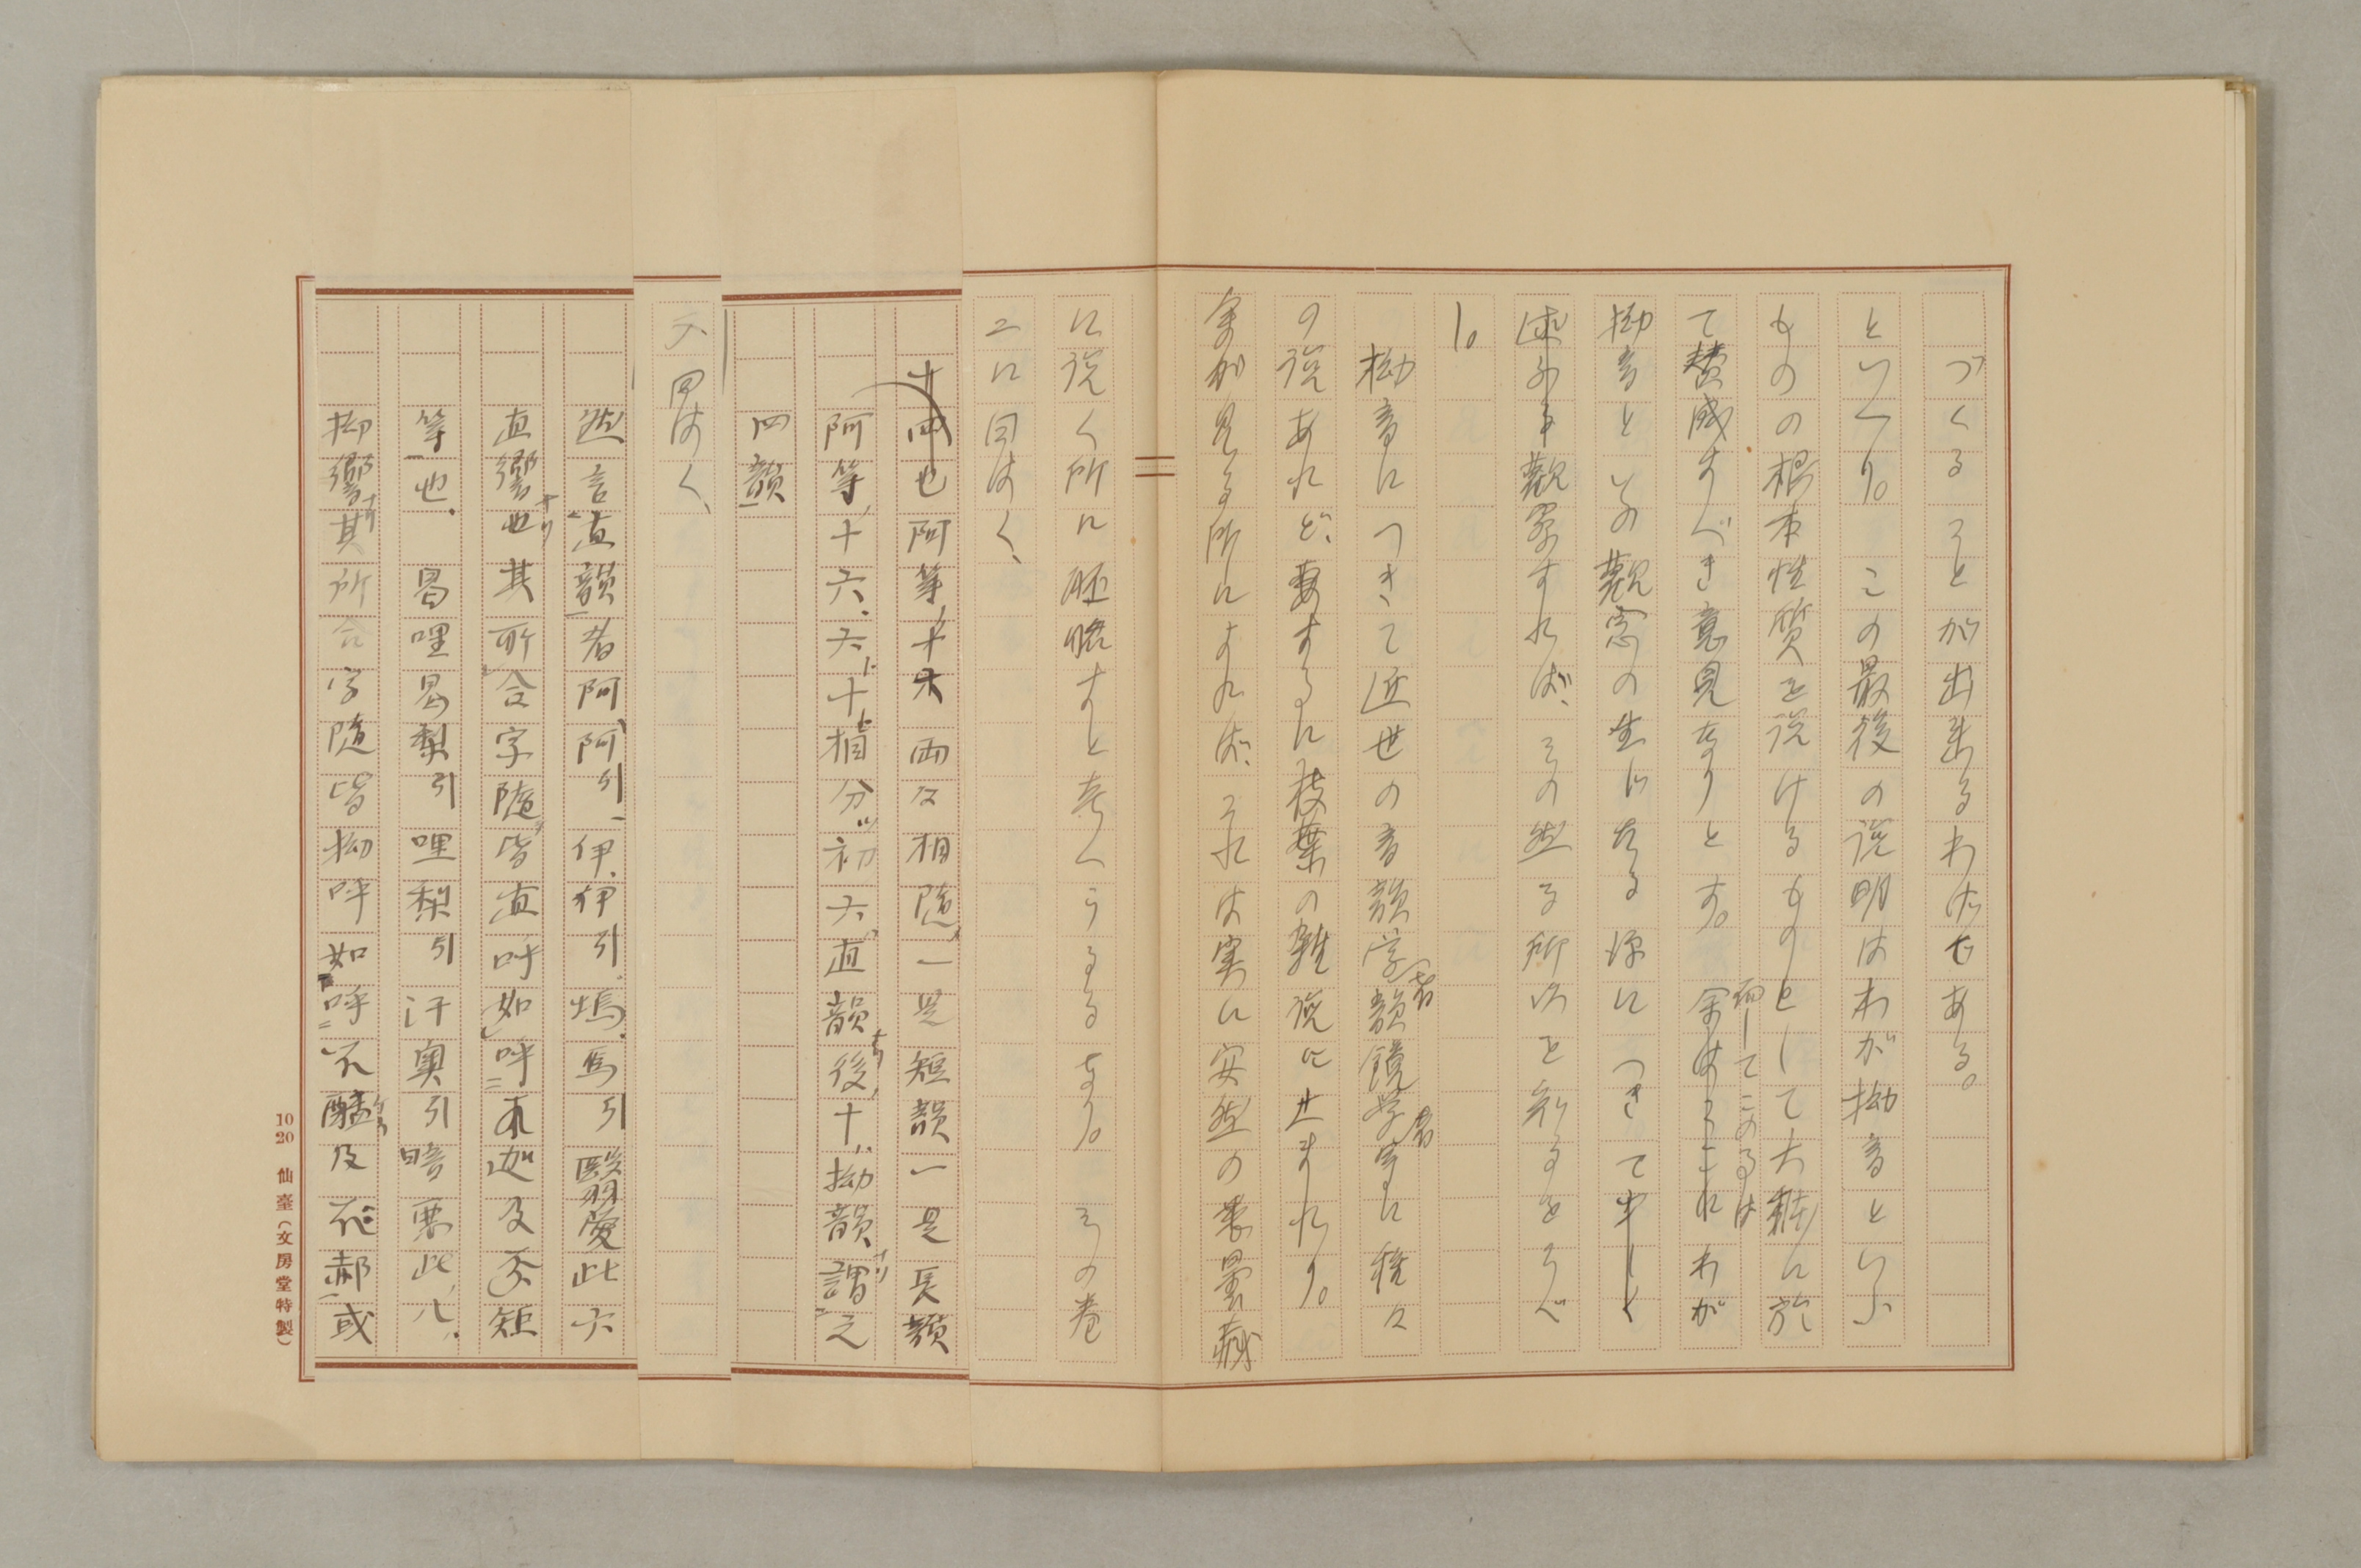 づくることが出来るわけである。
といへり。この最後の説明はわが拗音といふ
ものの根本性質を説けるものとして大躰に於
て賛成すべき意見なりとす。而してこのるはわが
拗音といふ観念の生じたる源につきて
述ぶる事観察すればその然る所以を知るをうべ
し。
拗音につきて近世の音韻学者韻鏡学者等に種々
の説あれど、要するに枝葉の雑説に止まれり。
余が見る所にすれば、それは実に安然の悉曇蔵
に説く所に胚胎すと考へうるるなり。その巻
二に曰はく、
十四也阿等 両々相随一是短韻一是長韻
阿等十六六十相分初六直韻後十拗韻謂之
四韻
又曰はく、
然言直韻者阿阿引伊伊引塢塢引翳愛此六
直響也其所合字随皆直呼如呼 迦及 矩
等也 曷哩曷梨引哩梨引汙奥引暗悪此
拗響其所合字随皆拗呼如呼 及 郝或
10 20 仙臺(文房堂特製)